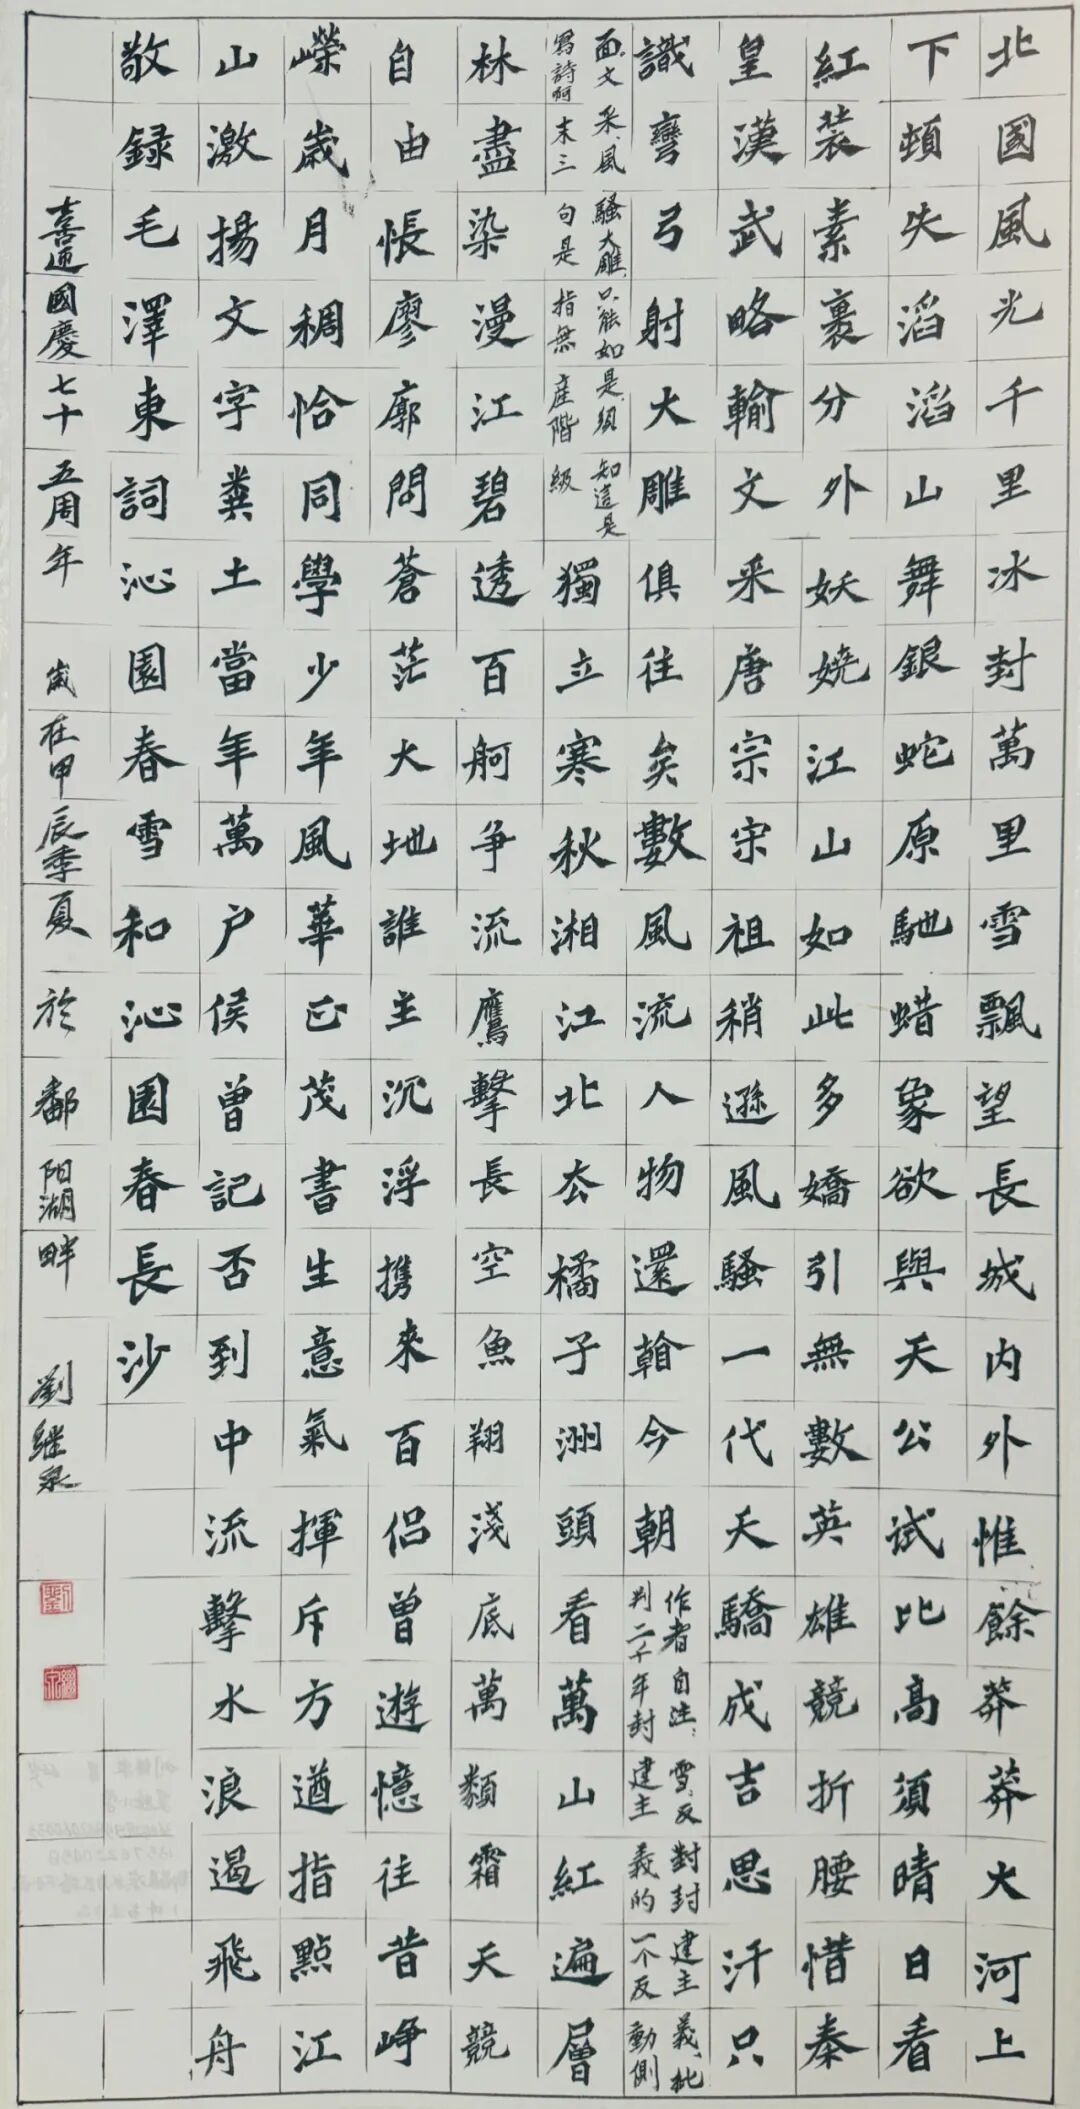 北國風光千里冰封萬里雪飄望長城内外惟餘莽莽大河上
下頓失滔滔山舞銀蛇原馳蜡象欲與天公試比高須晴日看
紅裝素裹分外妖嬈江山如此多嬌引無數英雄競折腰惜秦
皇漢武略輸文采唐宗宋祖稍遜風騷一代天驕成吉思汗只
識彎弓射大雕俱往矣數風流人物還看今朝
作者自注:雪,反對封建主義,批
判二千年封建主義的一个反動側
面,文采、風騷、大雕,只能如是,須知這是
寫詩啊末三句是指無産階級
獨立寒秋湘江北去橘子洲頭看萬山紅遍層
林盡染漫江碧透百舸争流鷹擊長空魚翔淺底萬類霜天競
自由悵廖廓問蒼茫大地誰主沉浮携來百侣曾遊憶往昔崢
嶸歲月稠恰同學少年風華正茂書生意氣揮斥方遒指點江
山激揚文字糞土當年萬户侯曾記否到中流擊水浪遏飛舟
敬録毛澤東詞沁園春雪和沁園春長沙
喜迎國慶七十五周年 歲在甲辰季夏於鄱阳湖畔 劉继泉
劉
繼泉